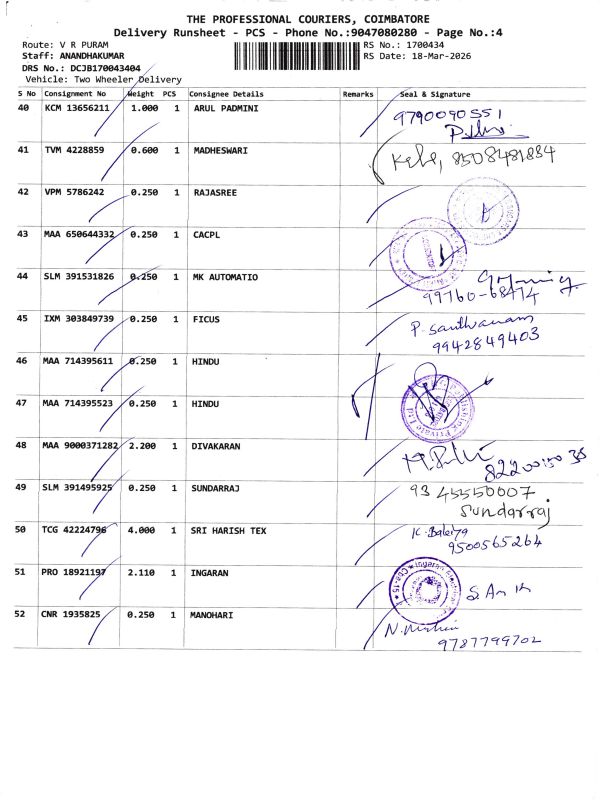 THE PROFESSIONAL COURIERS, COIMBATORE
Delivery Runsheet - PCS - Phone No.:9047080280 - Page No.:4
Route: V R PURAM
RS No.: 1700434
Staff: ANANDHAKUMAR
RS Date: 18-Mar-2026
DRS No.: DCJB170043404
Vehicle: Two Wheeler Delivery
S No Consignment No Weight PCS Consignee Details Remarks Seal & Signature
40 KCM 13656211 1.000 1 ARUL PADMINI 9790090551
41 TVM 4228859 0.600 1 MADHESWARI 8508481884
42 VPM 5786242 0.250 1 RAJASREE
43 MAA 650644332 0.250 1 CACPL
44 SLM 391531826 0.250 1 MK AUTOMATIO
99760-68474
45 IXM 303849739 0.250 1 FICUS P. Santhanam
9942849403
46 MAA 714395611 0.250 1 HINDU
47 MAA 714395523 0.250 1 HINDU
48 MAA 9000371282 2.200 1 DIVAKARAN
49 SLM 391495925 0.250 1 SUNDARRAJ 9345550007
Sundarraj
50 TCG 42224796 4.000 1 SRI HARISH TEX
9500565264
51 PRO 18921197 2.110 1 INGARAN
52 CNR 1935825 0.250 1 MANOHARI
9787799702